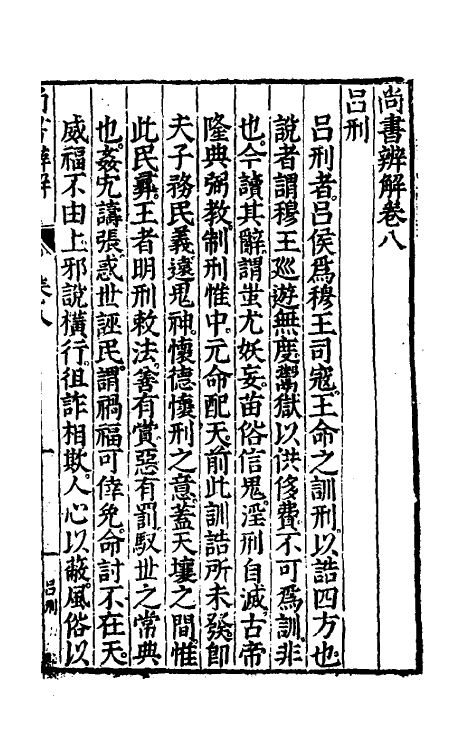 尚書辨解卷八
呂刑
呂刑者呂侯爲穆王司寇王命之訓刑以誥四方也
說者謂穆王巡遊無度鬻獄以供侈費不可爲訓非
也今讀其辭謂蚩尤妖妄苗俗信鬼淫刑自滅古帝
隆典弼教制刑惟中元命配天前此訓誥所未發卽
夫子務民義遠鬼神懷德懷刑之意蓋天壤之間惟
此民彞王者明刑敕法善有賞惡有罰馭世之常典
也姦宄譸張惑世誣民謂禍福可倖免命討不在天
威福不由上邪說橫行徂詐相欺人心以蔽風俗以
尚書辨解
卷八
一
呂刑